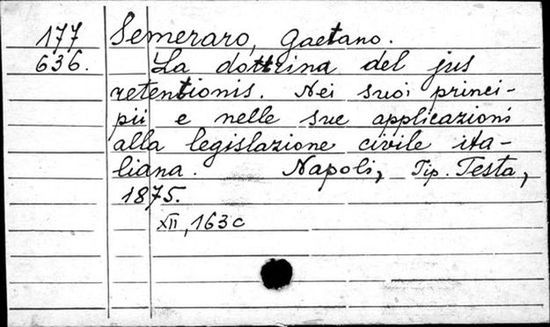 177 Semeraro, Gaetano.
636. La dottrina del jus
retentionis. Nei suoi princi-
pii e nelle sue applicazioni
alla legislazione civile ita-
liana. Napoli, Tip. Testa,
1875.
XII, 163 c